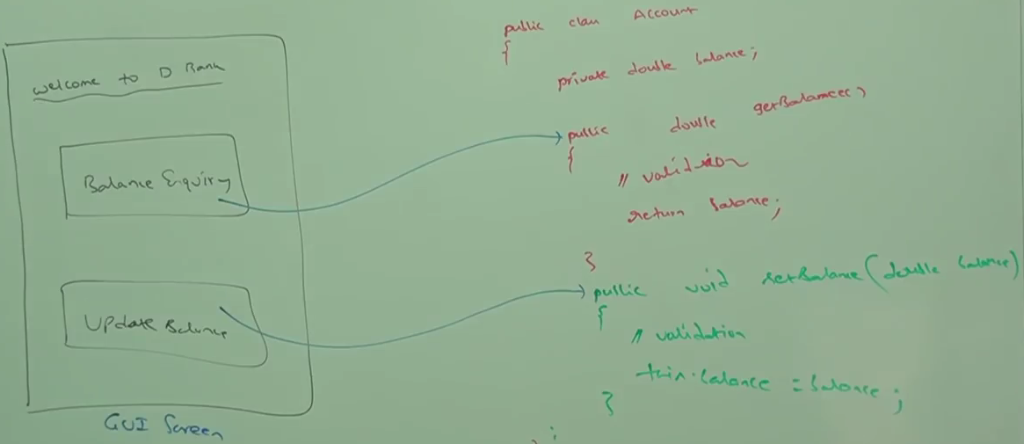 welcome to D Bank
Balance Enquiry
Update Balance
GUI Screen
public class Account
{
private double balance;
public double getBalance()
{
// validation
return balance;
}
public void setBalance(double balance)
{
// validation
this.balance = balance;
}